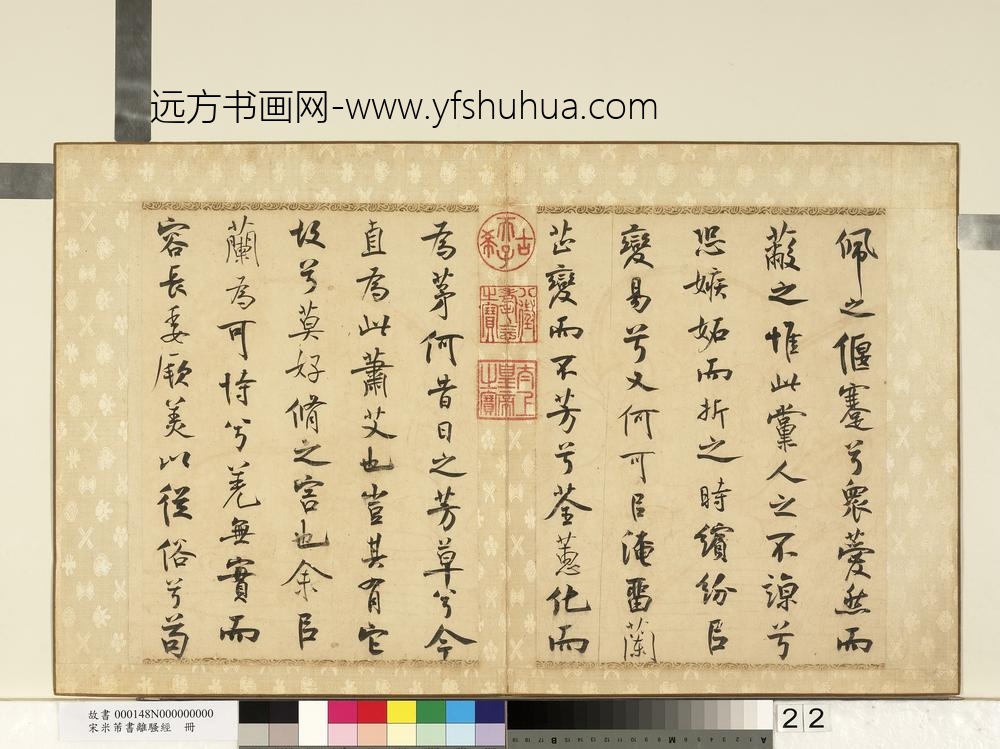 远方书画网-www.yfshuhua.com
佩之偃蹇兮眾薆然而
蔽之惟此黨人之不諒兮
恐嫉妬而折之時繽紛㠯
變易兮又何可㠯淹留蘭
芷變而不芳兮荃蕙化而
為茅何昔日之芳草兮今
直為此蕭艾也豈其有它
故兮莫好脩之害也余㠯
蘭為可恃兮羌無實而
容長委厥美以從俗兮苟
古希天子
八徵耄念之寶
太上皇帝之寶
故書 000148N000000000
宋米芾書離騷經 冊
22